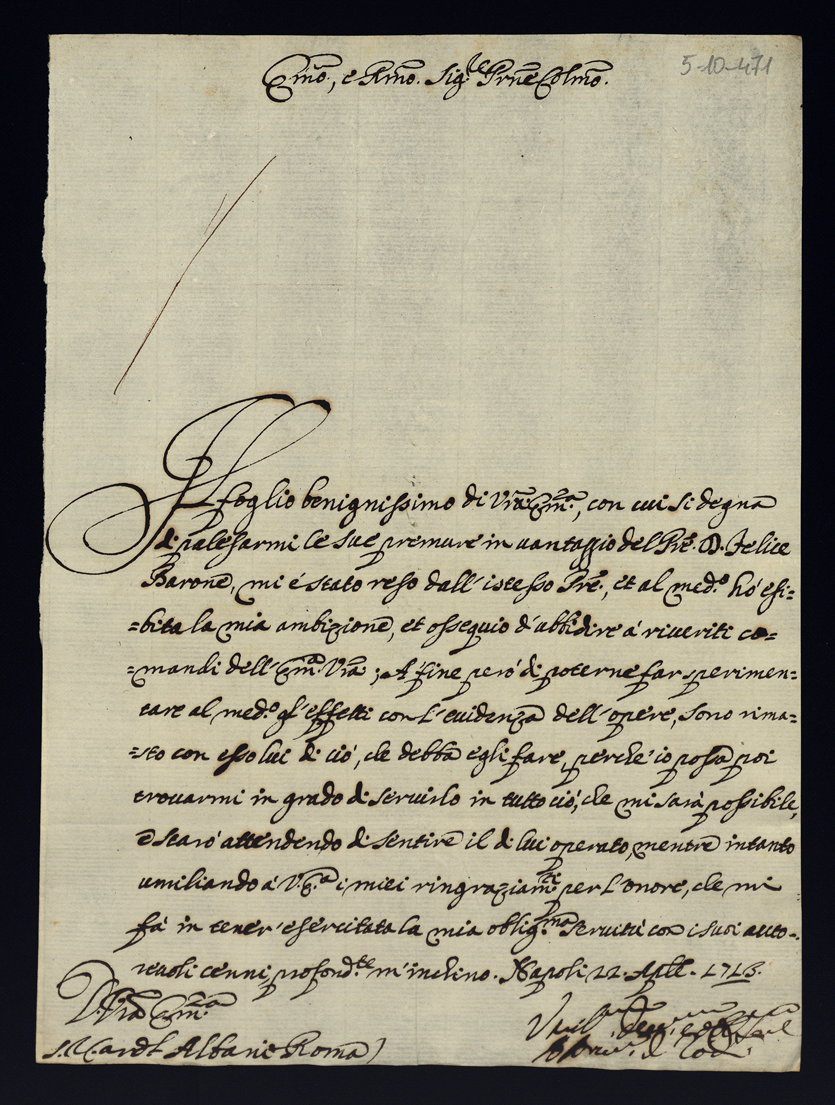 5-10-471
Em̃o, e Rm̃o. Sig.re Prñe Colm̃o.
Il foglio benignissimo di Vrã Em̃.a, con cui si degna
di palesarmi le sue premure in vantaggio del Prẽ. D. Felice
Barone, mi é stato reso dall' istesso Prẽ., et al med.o hó esi=
=bita la mia ambizione, et ossequio d' ubbidire á riveriti co=
=mandi dell' Em̃.a Vrã; A fine peró di poterne far sperimen=
tare al med.o gl' effetti con l' evidenza dell' opere, sono rima=
=sto con esso lui di ció, che debba egli fare, perche io possa poi
trovarmi in grado di servirlo in tutto ció, che mi sará possibile,
e staró attendendo di sentire il di lui operato, mentre intanto
umiliando á V. E.a i miei ringraziam.ti per l' onore, che mi
fá in tener' esercitata la mia oblig.ma servitú con i suoi auto=
revoli cenni, profond.te m' inchino. Napoli 22. Aplẽ. 1713.
D. Vrã Em̃.a
S.r Card.l Albani Roma)